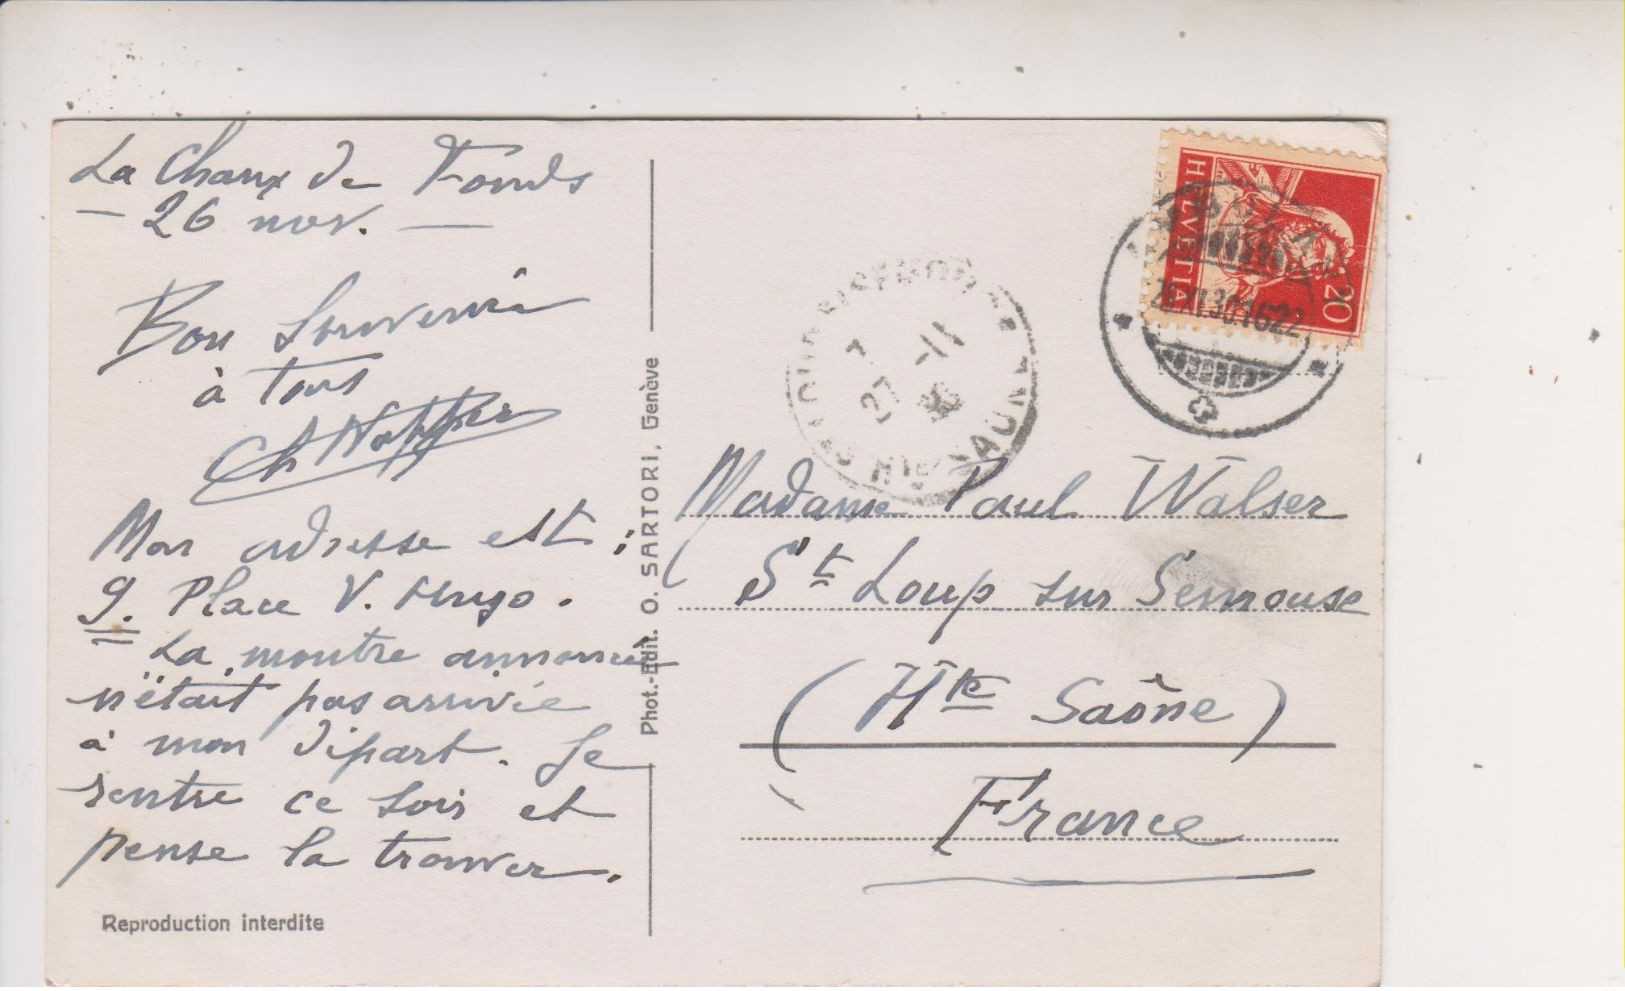 La Chaux de Fonds
- 26 nov. -
Bon Souvenir
à tous
Ch
Mon adresse est :
9. Place V. Hugo.
La montre annoncée
n'était pas arrivée
à mon départ. Je
rentre ce soir et
pense la trouver.
Reproduction interdite
Phot.-Edit. O. SARTORI, Genève
HELVETIA
20
26.XI.30.1622
27 -11
30
HTE SAONE
Madame Paul Walser
St Loup sur Semouse
(Hte Saône)
France